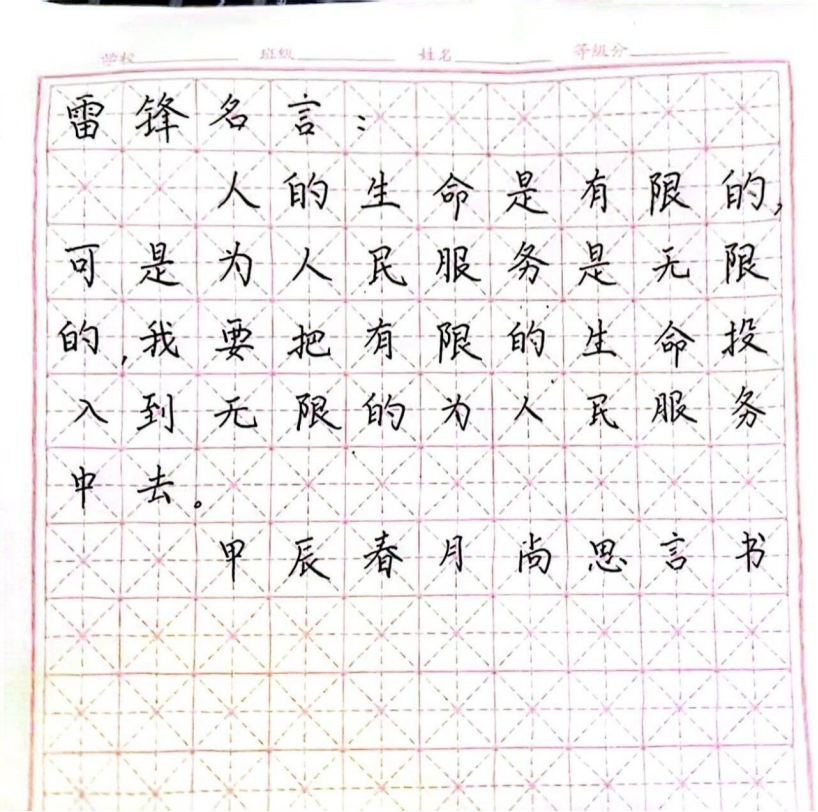 学校 班级 姓名 等级分
雷锋名言：
人的生命是有限的,
可是为人民服务是无限
的,我要把有限的生命投
入到无限的为人民服务
中去。
甲辰春月尚思言书